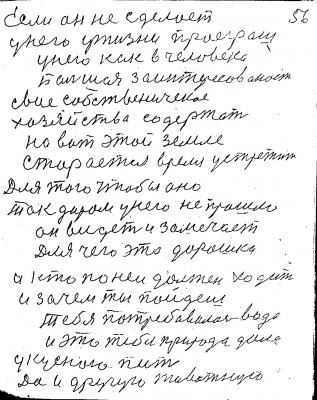 Если он не сделает 56
у него у жизни проеграш
у него как в человека
балшая заинтересованаст
свае собственическое
хозяйства содержат
на вот этой земле
старается время
Для того чтобы оно
так даром у него не прошло
он видет и замечает
для чего эта дорошка
и кто по ней должен ходит
и зачем ты пойдеш
тебя потребавалас вада
и это тебе природа дала
укусного пит
Да и другую животную